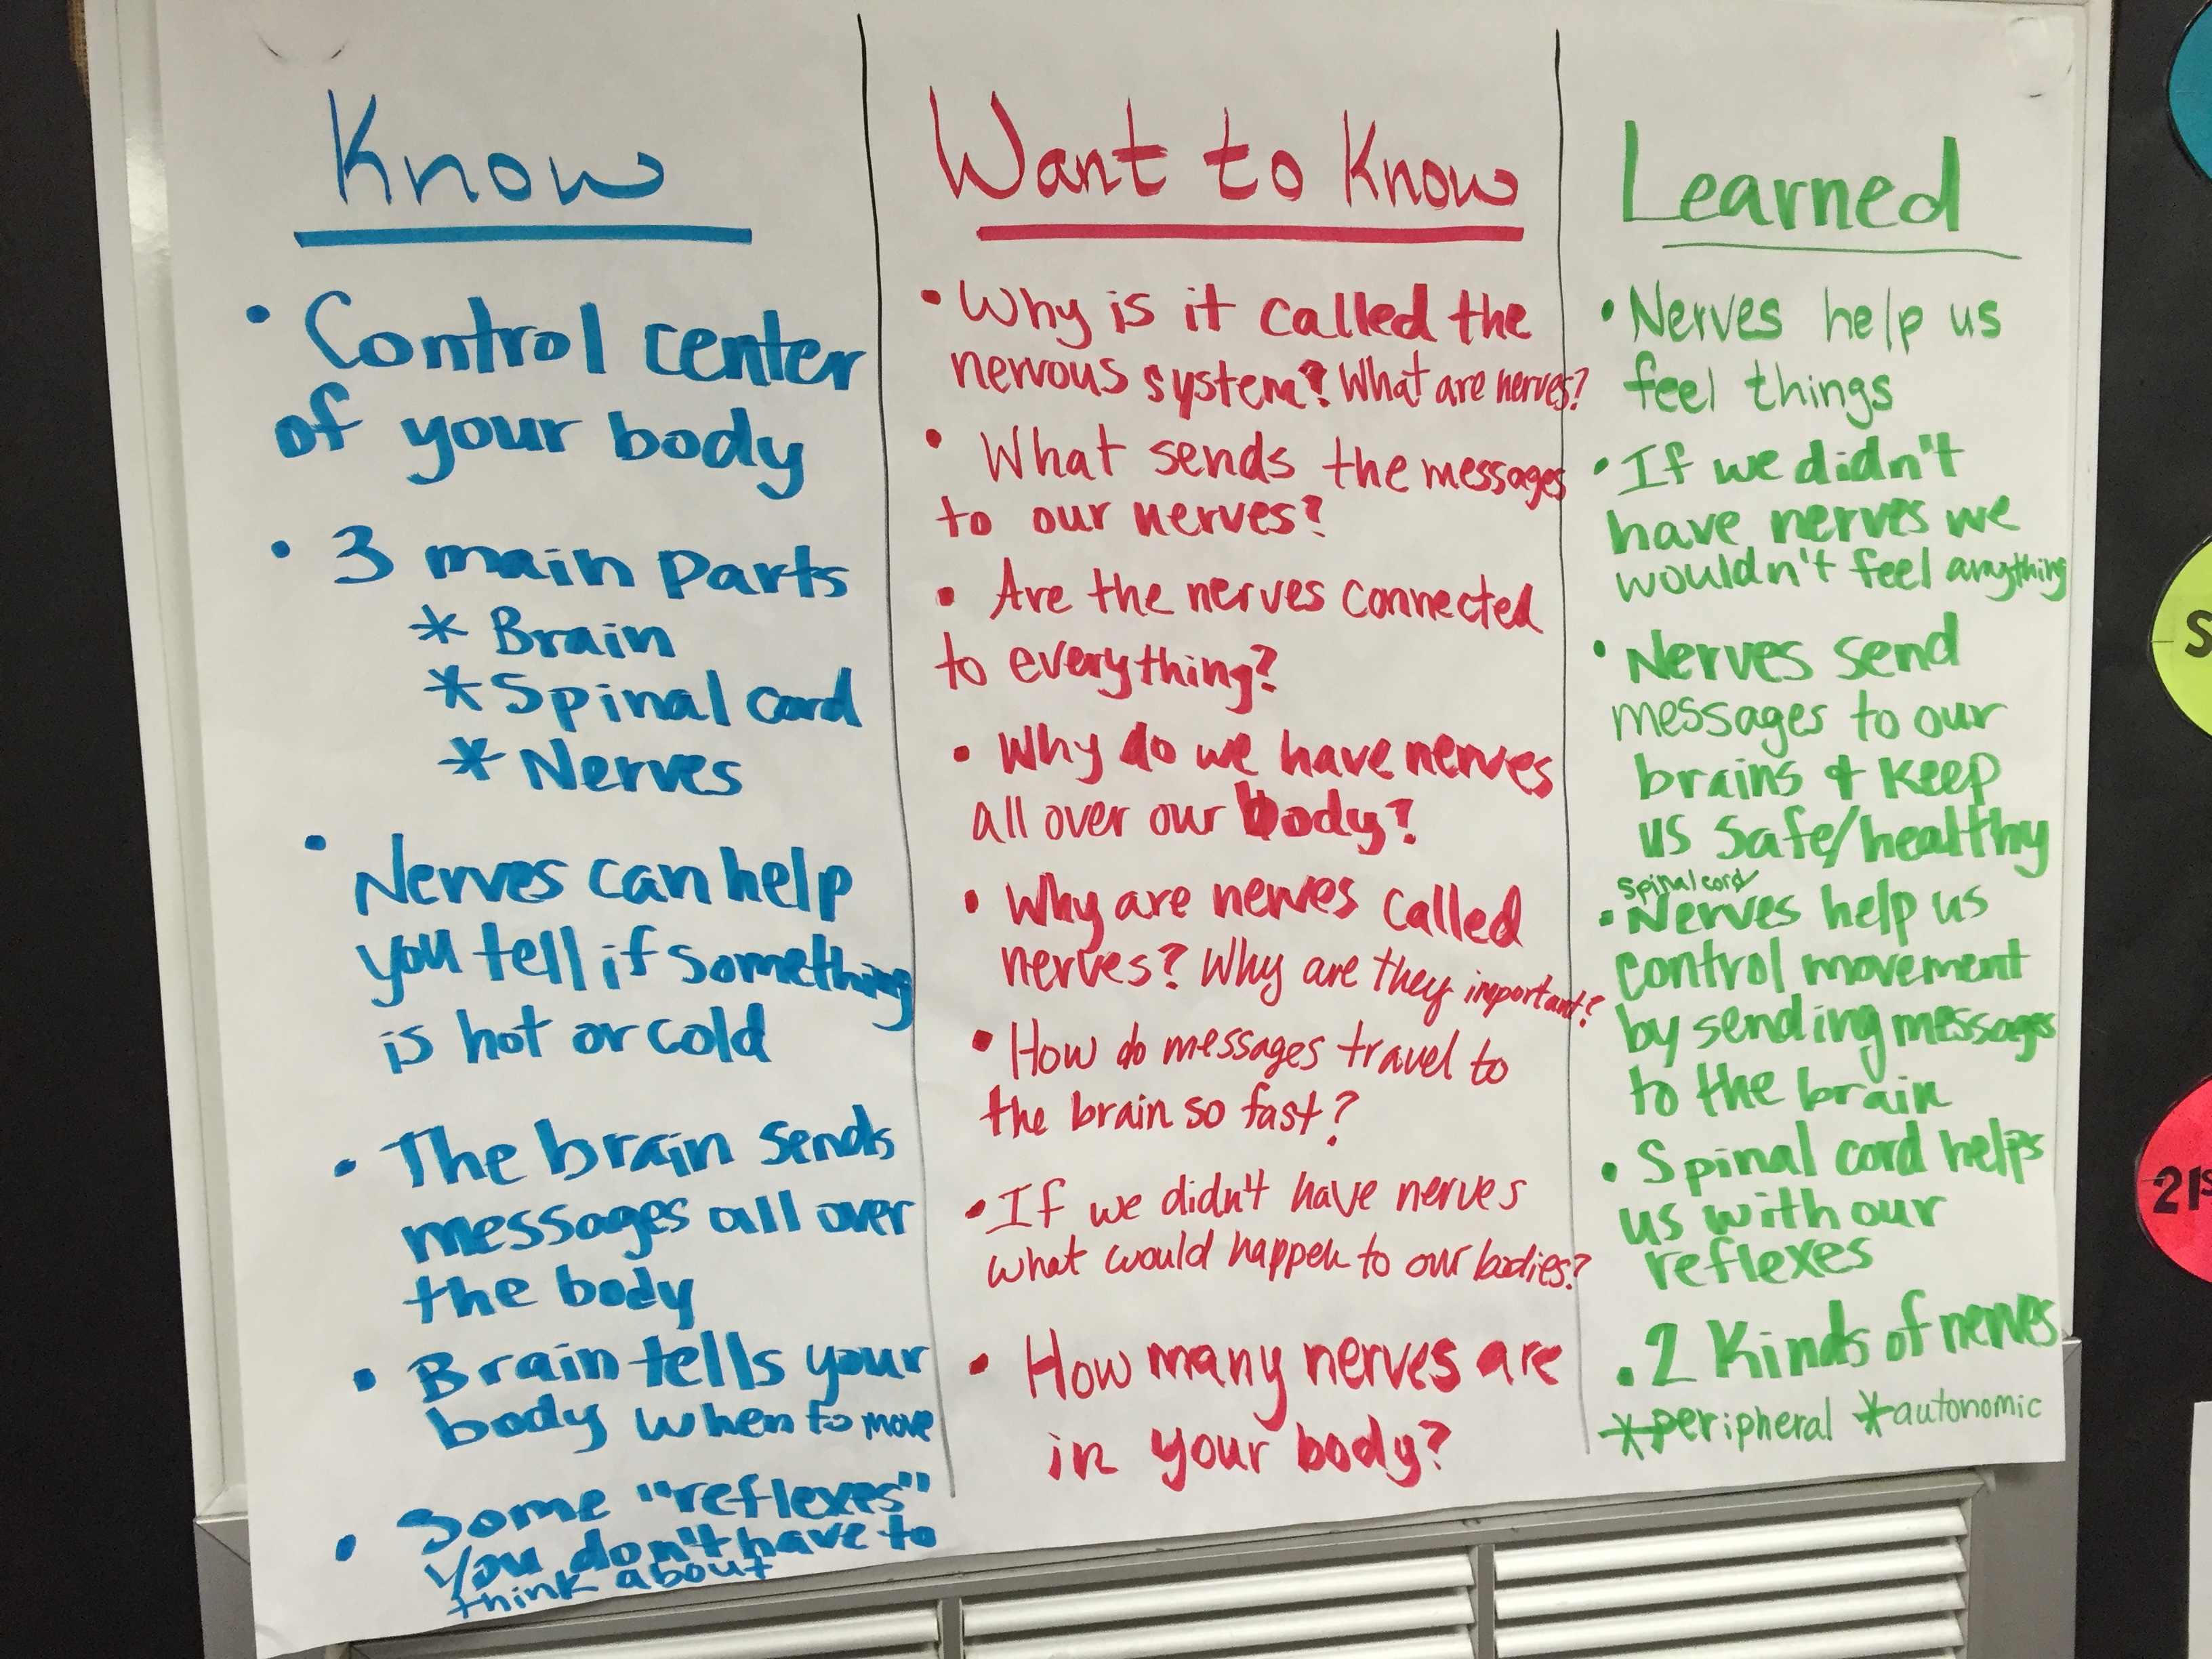 Know
• Control center
of your body
• 3 main parts
* Brain
* Spinal cord
* Nerves
• Nerves can help
you tell if something
is hot or cold
• The brain sends
messages all over
the body
• Brain tells your
body when to move
• Some "reflexes"
you don't have to
think about
Want to Know
• Why is it called the
nervous system? What are nerves?
• What sends the messages
to our nerves?
• Are the nerves connected
to everything?
• Why do we have nerves
all over our body?
• Why are nerves called
nerves? Why are they important?
• How do messages travel to
the brain so fast?
• If we didn't have nerves
what would happen to our bodies?
• How many nerves are
in your body?
Learned
• Nerves help us
feel things
• If we didn't
have nerves we
wouldn't feel anything
• Nerves send
messages to our
brains & keep
us safe/healthy
spinal cord
• Nerves help us
control movement
by sending messages
to the brain
• Spinal cord helps
us with our
reflexes
• 2 Kinds of nerves
*peripheral *autonomic
S
21s